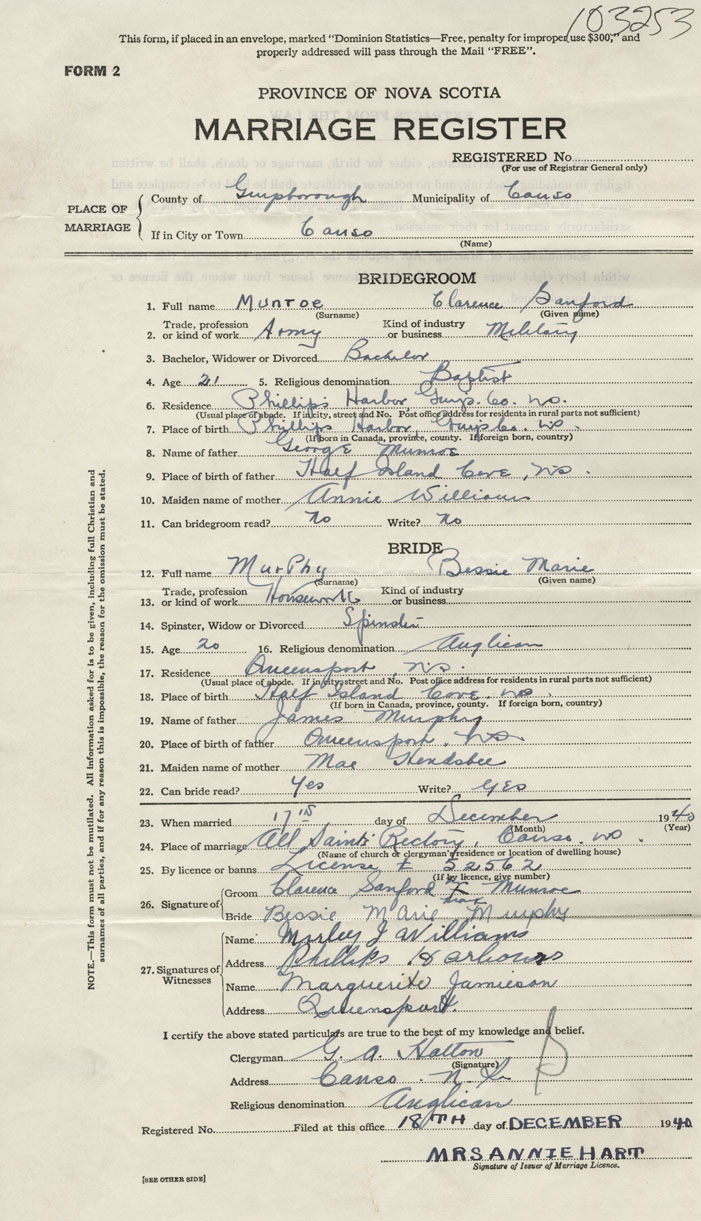 103253
This form, if placed in an envelope, marked "Dominion Statistics—Free, penalty for improper use $300," and
properly addressed will pass through the Mail "FREE".
FORM 2
PROVINCE OF NOVA SCOTIA
MARRIAGE REGISTER
REGISTERED No.
(For use of Registrar General only)
PLACE OF MARRIAGE
County of Guysborough Municipality of Canso
If in City or Town Canso
(Name)
BRIDEGROOM
1. Full name Munroe Clarence Sanford
(Surname) (Given name)
2. Trade, profession or kind of work Army Kind of industry or business Military
3. Bachelor, Widower or Divorced Bachelor
4. Age 21 5. Religious denomination Baptist
6. Residence Phillips Harbor, Guys. Co. N.S.
(Usual place of abode. If in city, street and No. Post office address for residents in rural parts not sufficient)
7. Place of birth Phillips Harbor, Guys Co. N.S.
(If born in Canada, province, county. If foreign born, country)
8. Name of father George Munroe
9. Place of birth of father Half Island Cove, N.S.
10. Maiden name of mother Annie Williams
11. Can bridegroom read? No Write? No
BRIDE
12. Full name Murphy Bessie Marie
(Surname) (Given name)
13. Trade, profession or kind of work Housework Kind of industry or business
14. Spinster, Widow or Divorced Spinster
15. Age 20 16. Religious denomination Anglican
17. Residence Queensport, N.S.
(Usual place of abode. If in city, street and No. Post office address for residents in rural parts not sufficient)
18. Place of birth Half Island Cove. N.S.
(If born in Canada, province, county. If foreign born, country)
19. Name of father James Murphy
20. Place of birth of father Queensport, N.S.
21. Maiden name of mother Mae Hendsbee
22. Can bride read? Yes Write? Yes
23. When married 17th day of December 1940
(Month) (Year)
24. Place of marriage All Saints Rectory, Canso. N.S.
(Name of church or clergyman's residence or location of dwelling house)
25. By licence or banns License # 52562
(If by licence, give number)
26. Signature of
Groom Clarence Sanford X Munroe
Bride Bessie Marie Murphy
27. Signatures of Witnesses
Name Mirley J Williams
Address Phillips Harbour
Name Marguerite Jamieson
Address Queensport.
I certify the above stated particulars are true to the best of my knowledge and belief.
Clergyman G. A. Hatton
(Signature)
Address Canso. N.S.
Religious denomination Anglican
Registered No. Filed at this office 18TH day of DECEMBER 1940
MRS ANNIE HART
Signature of Issuer of Marriage Licence.
[SEE OTHER SIDE]
NOTE.—This form must not be mutilated. All information asked for is to be given, including full Christian and
surnames of all parties, and if for any reason this is impossible, the reason for the omission must be stated.